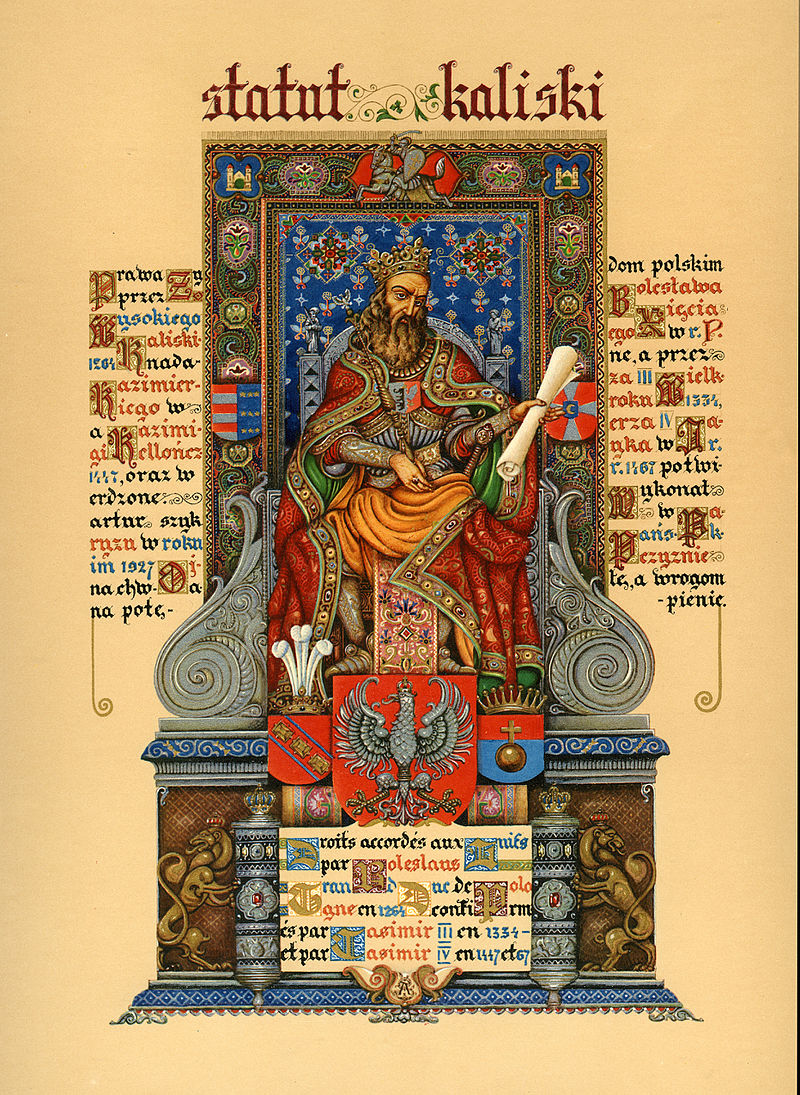 statut kaliski
Prawa Zy dom polskim
przez Bolesława
Wysokiego Xięcia
Kaliski- ego w r. P.
1264 nada- ne, a przez
Kazimier- za III Wielk-
kiego w roku 1334,
a Kazimi- erza IV Ja-
giellończ yka w r.
1447, oraz w r. 1467 potwi
erdzone. Wykonał
artur szyk w Pa-
ryżu w roku Pańs- k-
im 1927 Oj- czyznie
na chw- a łę, a wrogom
na potę,- -pienie.
Droits accordés aux Juifs
par Boleslaus
Grand Duc de Polo
gne en 1264 Confirm
és par Casimir III en 1334-
et par Casimir IV en 1447 et 67